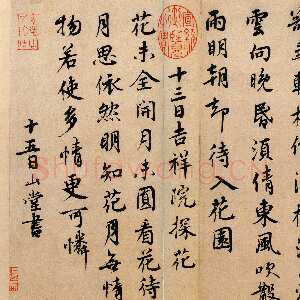 雲向晚昏須倩東風吹散
雨明朝却待入花園
十三日吉祥院探花
花未全開月未圓看花待
月思依然明知花月無情
物若使多情更可憐
十五日山堂書